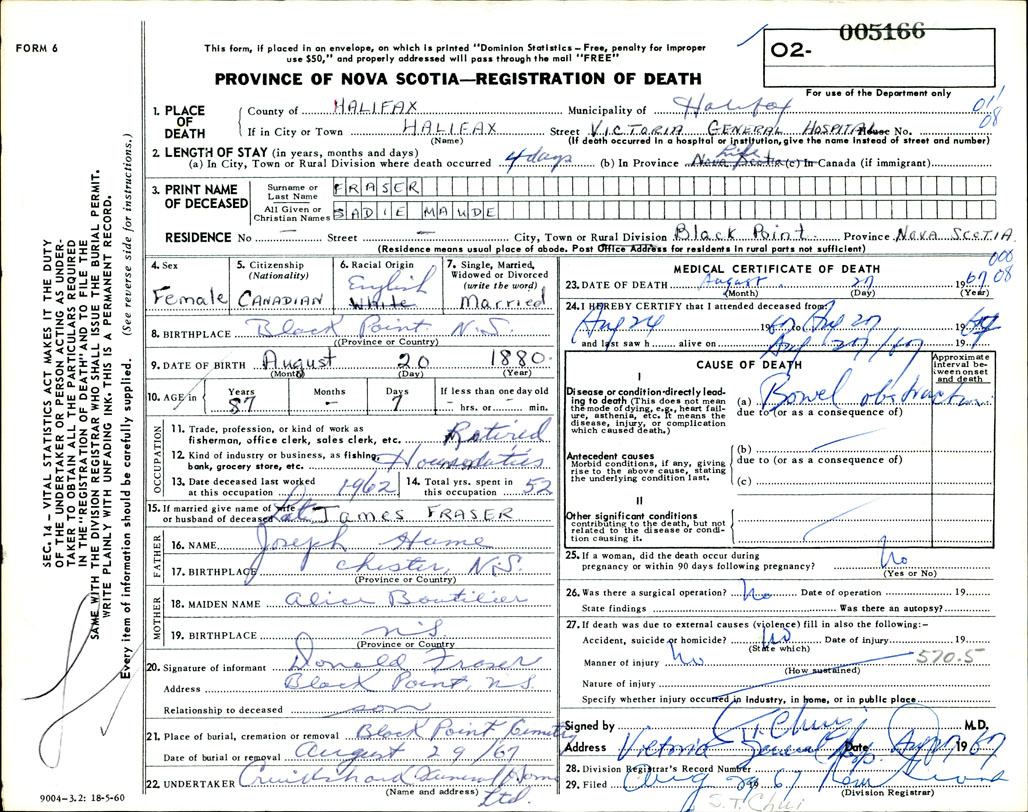 FORM 6
This form, if placed in an envelope, on which is printed "Dominion Statistics – Free, penalty for improper
use $50," and properly addressed will pass through the mail "FREE"
PROVINCE OF NOVA SCOTIA—REGISTRATION OF DEATH
005166
02-
For use of the Department only
011
08
1. PLACE OF DEATH
County of HALIFAX Municipality of Halifax
If in City or Town HALIFAX Street VICTORIA GENERAL HOSPITAL House No.
(Name) (If death occurred in a hospital or institution, give the name instead of street and number)
2. LENGTH OF STAY (in years, months and days)
(a) In City, Town or Rural Division where death occurred 4 days (b) In Province Life Nova Scotia (c) In Canada (if immigrant)
3. PRINT NAME OF DECEASED
Surname or Last Name FRASER
All Given or Christian Names SADIE MAUDE
RESIDENCE No — Street — City, Town or Rural Division Black Point Province NOVA SCOTIA
(Residence means usual place of abode. Post Office Address for residents in rural parts not sufficient)
4. Sex Female
5. Citizenship (Nationality) CANADIAN
6. Racial Origin English White
7. Single, Married, Widowed or Divorced (write the word) Married
8. BIRTHPLACE Black Point N.S.
(Province or Country)
9. DATE OF BIRTH August 20 1880
(Month) (Day) (Year)
10. AGE in Years 87 Months — Days 7 If less than one day old — hrs. or — min.
OCCUPATION
11. Trade, profession, or kind of work as fisherman, office clerk, sales clerk, etc. Retired
12. Kind of industry or business, as fishing, bank, grocery store, etc. Houseduties
13. Date deceased last worked at this occupation 1962
14. Total yrs. spent in this occupation 52
15. If married give name of wife or husband of deceased Late JAMES FRASER
FATHER
16. NAME Joseph Hume
17. BIRTHPLACE Chester, N.S.
(Province or Country)
MOTHER
18. MAIDEN NAME Alice Boutilier
19. BIRTHPLACE N.S.
(Province or Country)
20. Signature of informant Donald Fraser
Address Black Point, N.S.
Relationship to deceased son
21. Place of burial, cremation or removal Black Point Cemetery
Date of burial or removal August 29/67
22. UNDERTAKER Cruikshank Funeral Home Ltd.
(Name and address)
9004–3.2: 18-5-60
SEC. 14 – VITAL STATISTICS ACT MAKES IT THE DUTY
OF THE UNDERTAKER OR PERSON ACTING AS UNDER-
TAKER TO OBTAIN ALL THE PARTICULARS REQUIRED
IN THE "REGISTRATION OF DEATH" AND TO FILE THE
SAME WITH THE DIVISION REGISTRAR WHO SHALL ISSUE THE BURIAL PERMIT.
WRITE PLAINLY WITH UNFADING INK. THIS IS A PERMANENT RECORD.
Every item of information should be carefully supplied. (See reverse side for instructions.)
MEDICAL CERTIFICATE OF DEATH
000
08
23. DATE OF DEATH August 27 1967
(Month) (Day) (Year)
24. I HEREBY CERTIFY that I attended deceased from
Aug 24 1967 to Aug 27 1967
and last saw h alive on Aug 27/67 19
CAUSE OF DEATH
Approximate interval between onset and death
I
Disease or condition directly leading to death (This does not mean the mode of dying, e.g., heart failure, asthenia, etc. It means the disease, injury, or complication which caused death.)
(a) Bowel obstruction
due to (or as a consequence of)
Antecedent causes
Morbid conditions, if any, giving rise to the above cause, stating the underlying condition last.
(b)
due to (or as a consequence of)
(c)
II
Other significant conditions
contributing to the death, but not related to the disease or condition causing it.
25. If a woman, did the death occur during pregnancy or within 90 days following pregnancy? No
(Yes or No)
26. Was there a surgical operation? No Date of operation 19
State findings Was there an autopsy?
27. If death was due to external causes (violence) fill in also the following:–
Accident, suicide or homicide? No Date of injury 19
(State which)
570.5
Manner of injury No
(How sustained)
Nature of injury
Specify whether injury occurred in industry, in home, or in public place
Signed by S.T. Chui M.D.
Address Victoria General Hosp. Date Aug 27 1967
28. Division Registrar's Record Number
29. Filed Aug 29 1967
(Division Registrar)
S.T. Chui